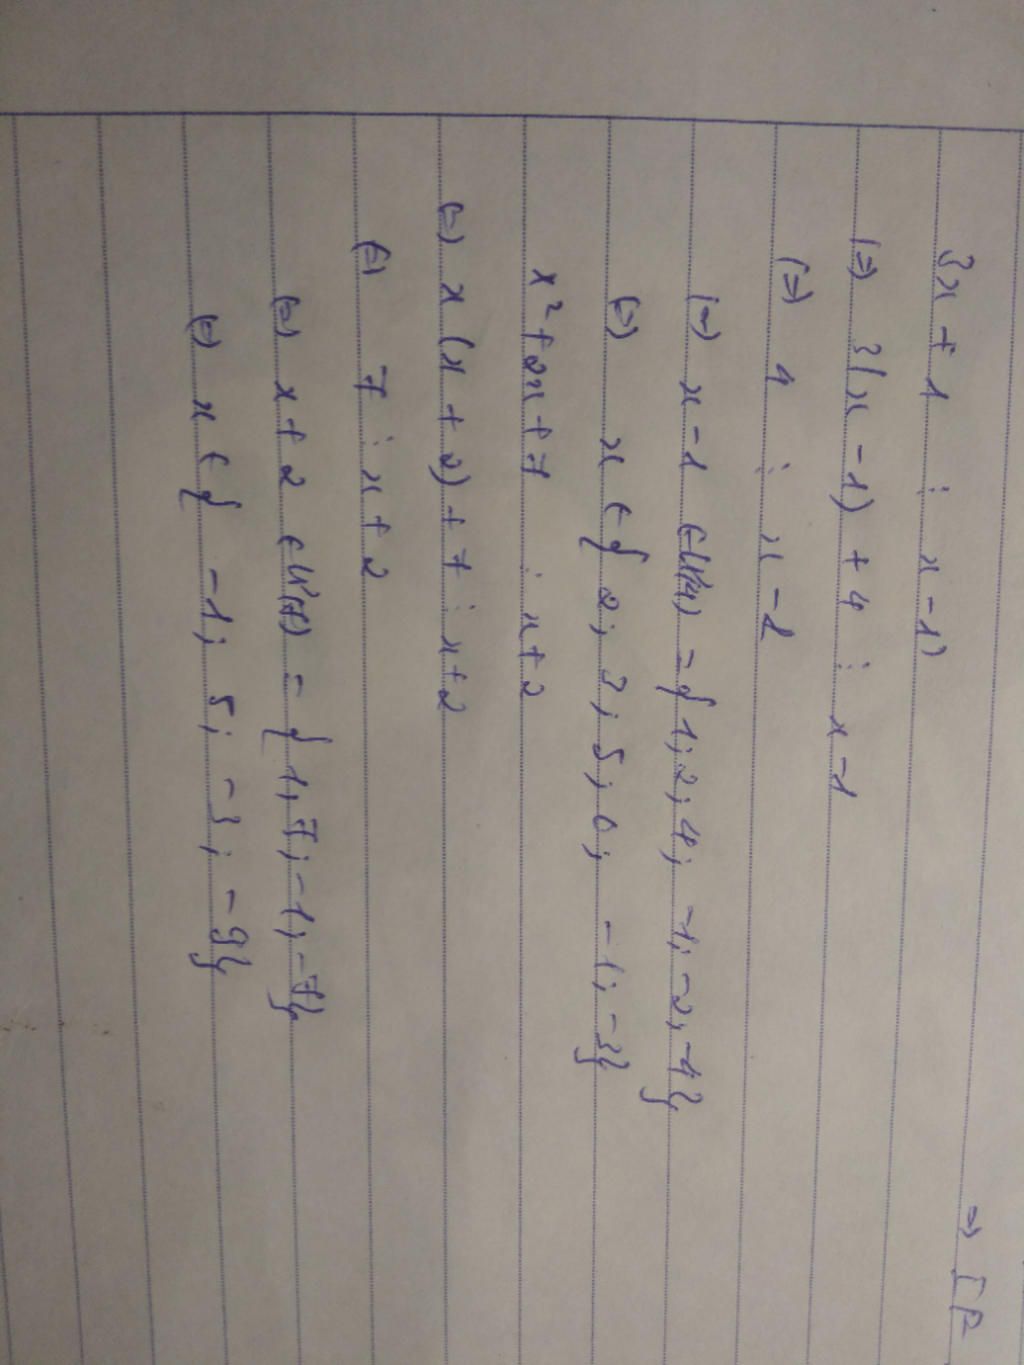 3x + 1 ⋮ x - 1)
(=) 3(x - 1) + 4 ⋮ x - 1
(=) 4 ⋮ x - 1
(=) x - 1 ∈ Ư(4) = {1; 2; 4; -1; -2; -4}
(=) x ∈ { 2; 3; 5; 0; -1; -3}
x² + 2x + 7 ⋮ x + 2
(=) x (x + 2) + 7 ⋮ x + 2
(=) 7 ⋮ x + 2
(=) x + 2 ∈ Ư(7) = { 1; 7; -1; -7}
(=) x ∈ { -1; 5; -3; -9}
=)